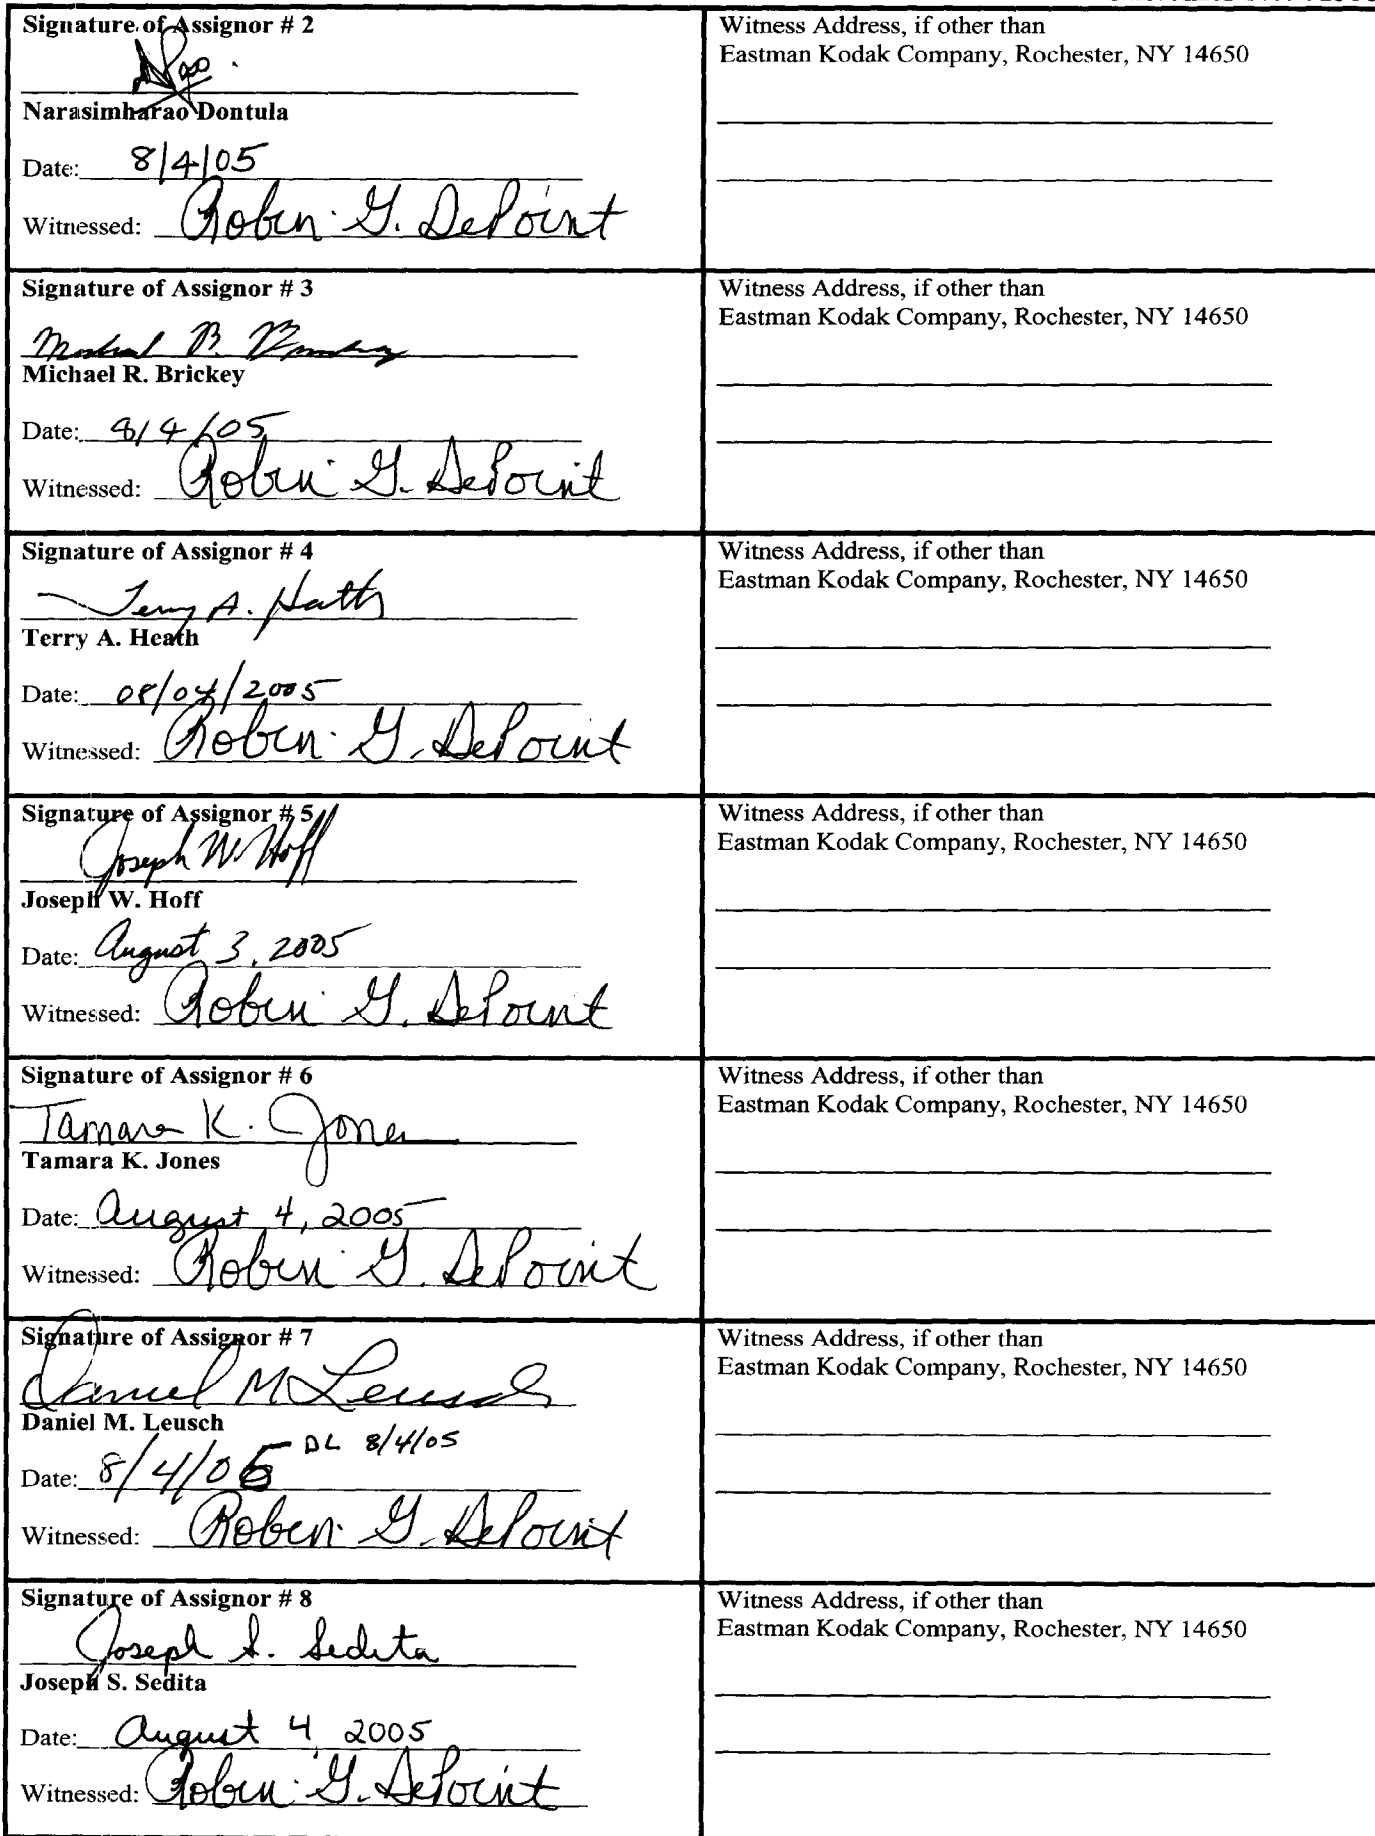 Signature of Assignor # 2
Narasimharao Dontula
Date: 8/4/05
Witnessed: Robin G. DePoint
Witness Address, if other than
Eastman Kodak Company, Rochester, NY 14650
Signature of Assignor # 3
Michael R. Brickey
Date: 8/4/05
Witnessed: Robin G. DePoint
Witness Address, if other than
Eastman Kodak Company, Rochester, NY 14650
Signature of Assignor # 4
Terry A. Heath
Terry A. Heath
Date: 08/04/2005
Witnessed: Robin G. DePoint
Witness Address, if other than
Eastman Kodak Company, Rochester, NY 14650
Signature of Assignor # 5
Joseph W. Hoff
Joseph W. Hoff
Date: August 3, 2005
Witnessed: Robin G. DePoint
Witness Address, if other than
Eastman Kodak Company, Rochester, NY 14650
Signature of Assignor # 6
Tamara K. Jones
Tamara K. Jones
Date: August 4, 2005
Witnessed: Robin G. DePoint
Witness Address, if other than
Eastman Kodak Company, Rochester, NY 14650
Signature of Assignor # 7
Daniel M Leusch
Daniel M. Leusch
DL 8/4/05
Date: 8/4/05
Witnessed: Robin G. DePoint
Witness Address, if other than
Eastman Kodak Company, Rochester, NY 14650
Signature of Assignor # 8
Joseph S. Sedita
Joseph S. Sedita
Date: August 4, 2005
Witnessed: Robin G. DePoint
Witness Address, if other than
Eastman Kodak Company, Rochester, NY 14650